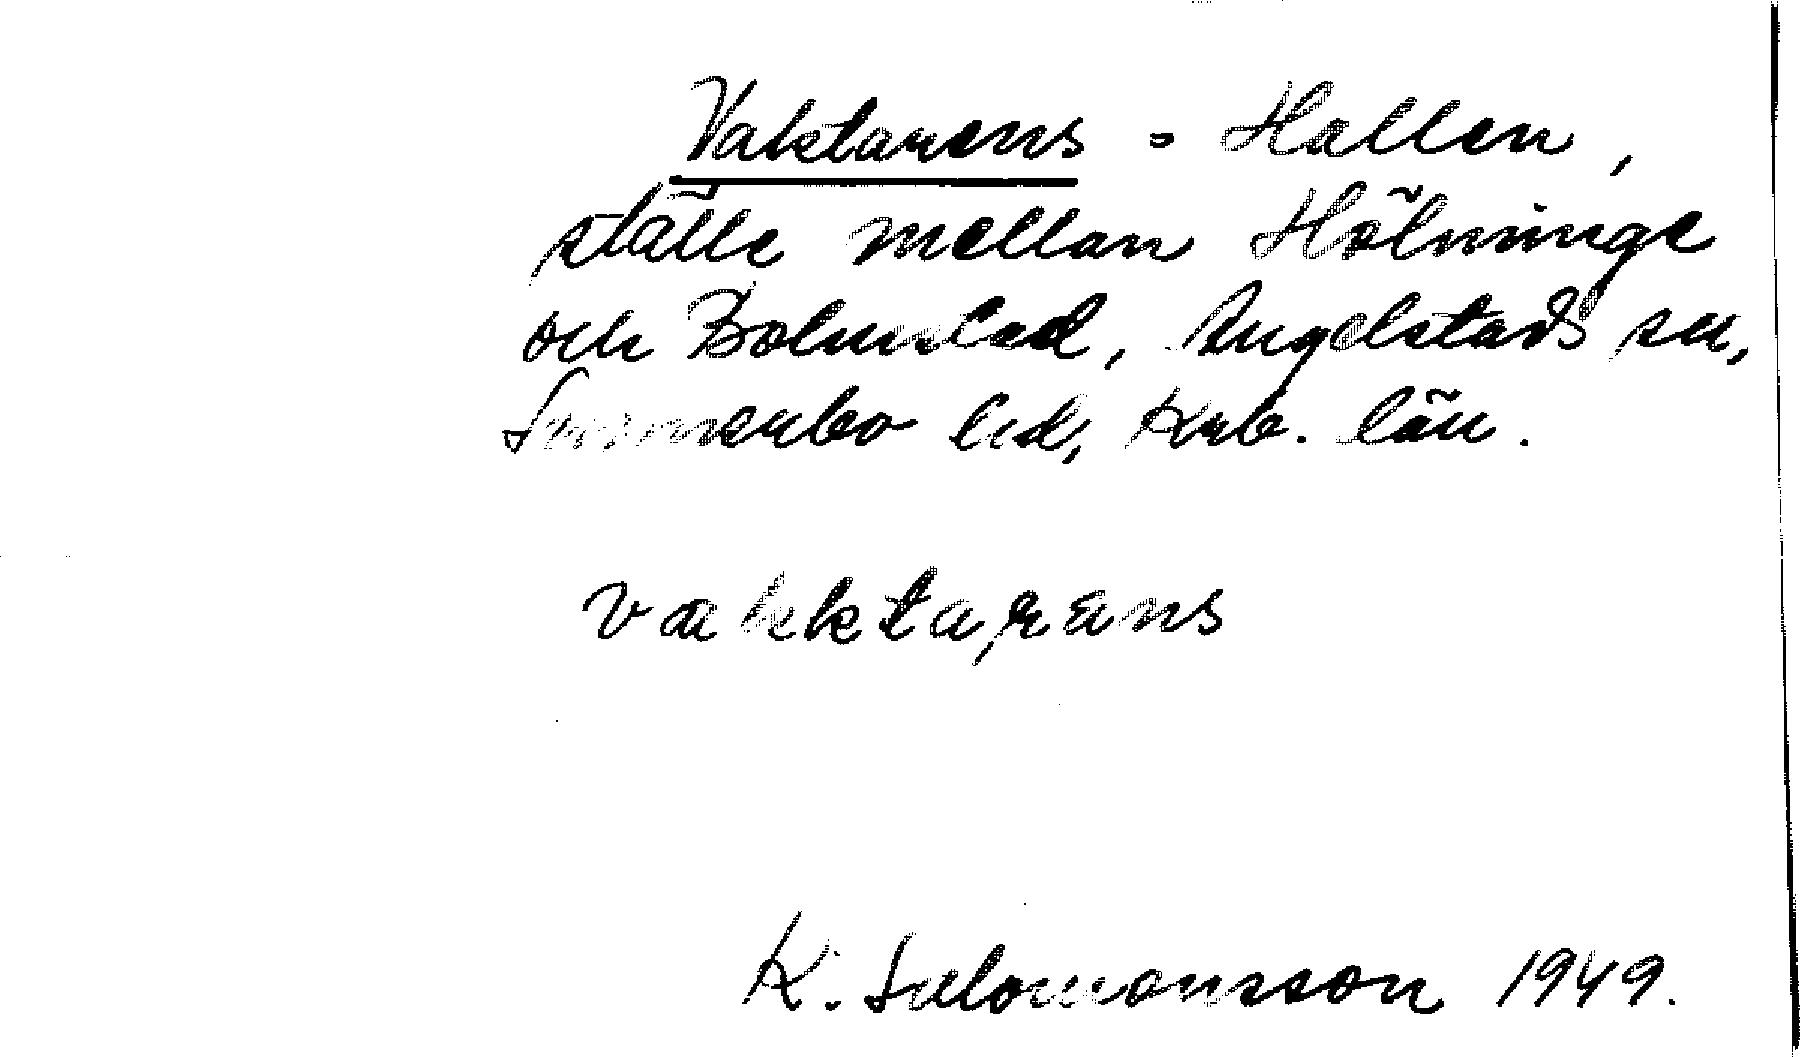 Vaktarens = Hallen,
ställe mellan Hölminge
och Bolmstad, Angelstads sn,
Sunnerbo hd, Krb. län.
vakktarans
K. Salomonsson 1949.